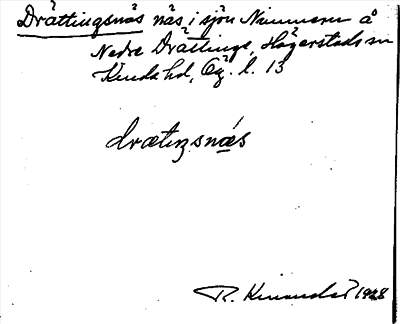 Drättingsnäs näs i sjön Nimmern å
Nedre Drättinge, Hägerstads sn
Kinda hd, Ög. l. 13
drætıŋsnä́s
R. Kinander 1928